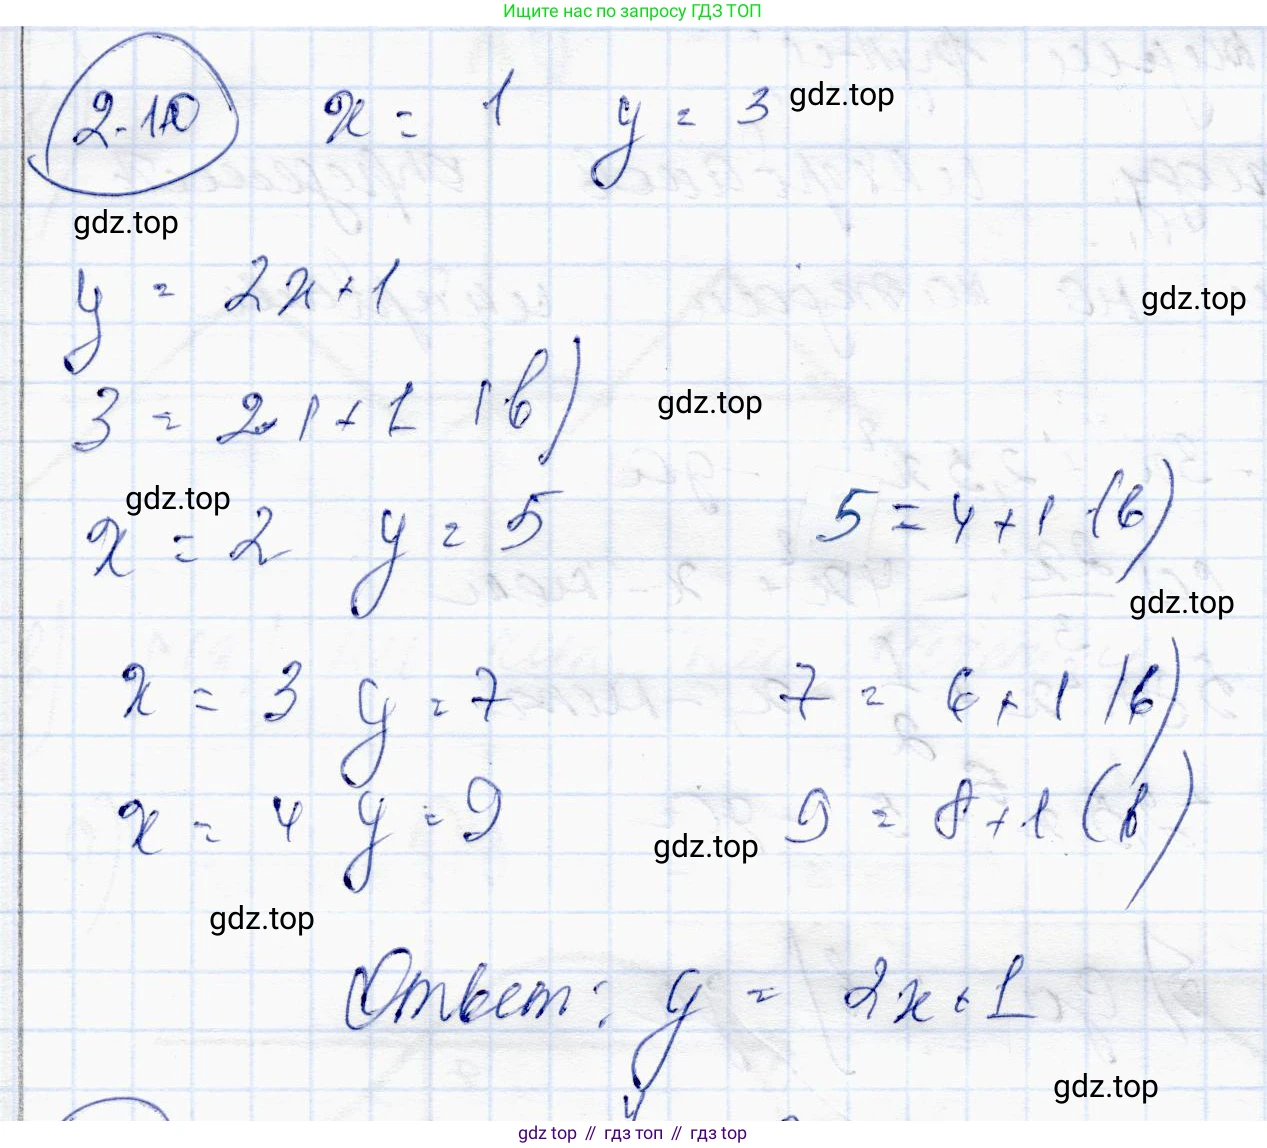 Ищите нас по запросу ГДЗ ТОП
2.10 x = 1 y = 3 gdz.top
gdz.top
y = 2x+1
gdz.top
3 = 2·1+1 (в)
gdz.top
gdz.top
x = 2 y = 5 5 = 4+1 (в)
gdz.top
x = 3 y = 7 7 = 6+1 (в)
x = 4 y = 9 9 = 8+1 (в)
gdz.top
gdz.top
Ответ: y = 2x+1
gdz.top
gdz top // гдз топ // gdz top